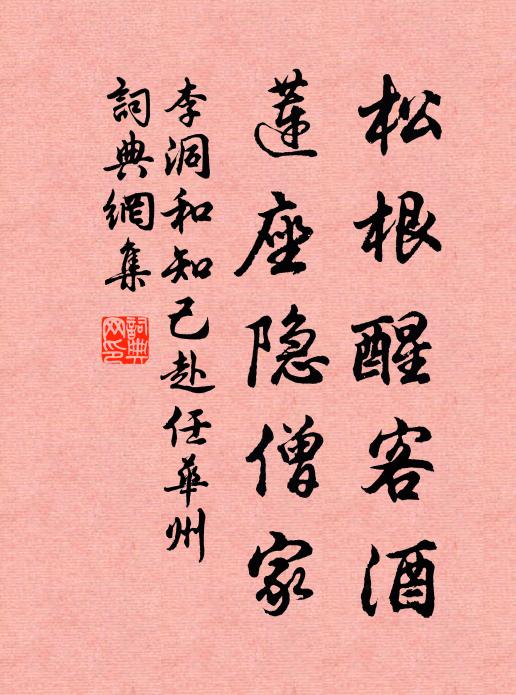 松根醒客酒
蓮座隐僧家
李洞和知己赴任華州
詞典網集
詞典网印